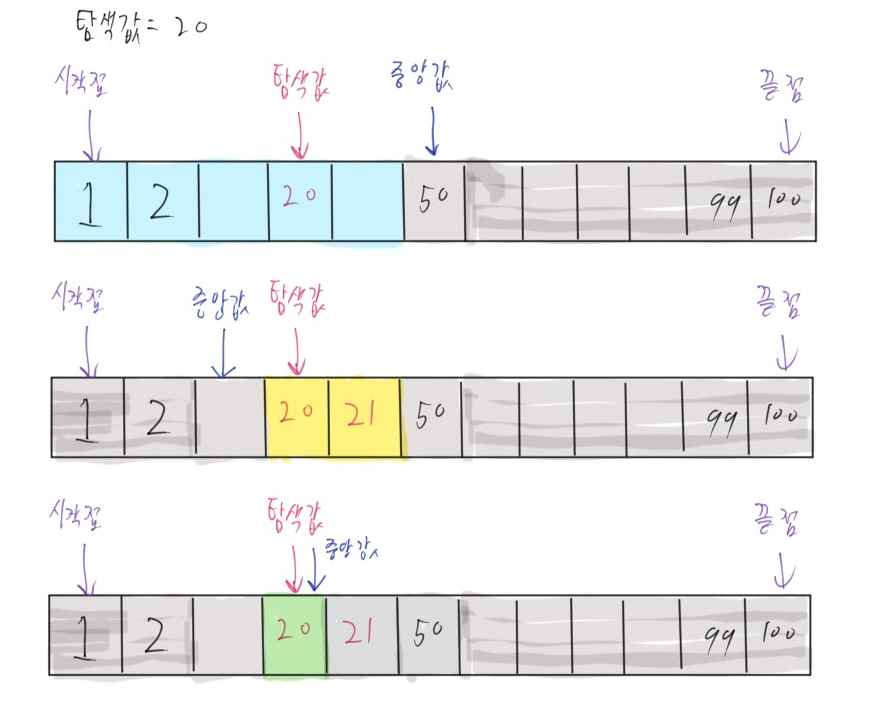 탐색값 = 20
시작점 탐색값 중앙값 끝점
1 2 20 50 99 100
시작점 중앙값 탐색값 끝점
1 2 20 21 50 99 100
시작점 탐색값 끝점
중앙값
1 2 20 21 50 99 100